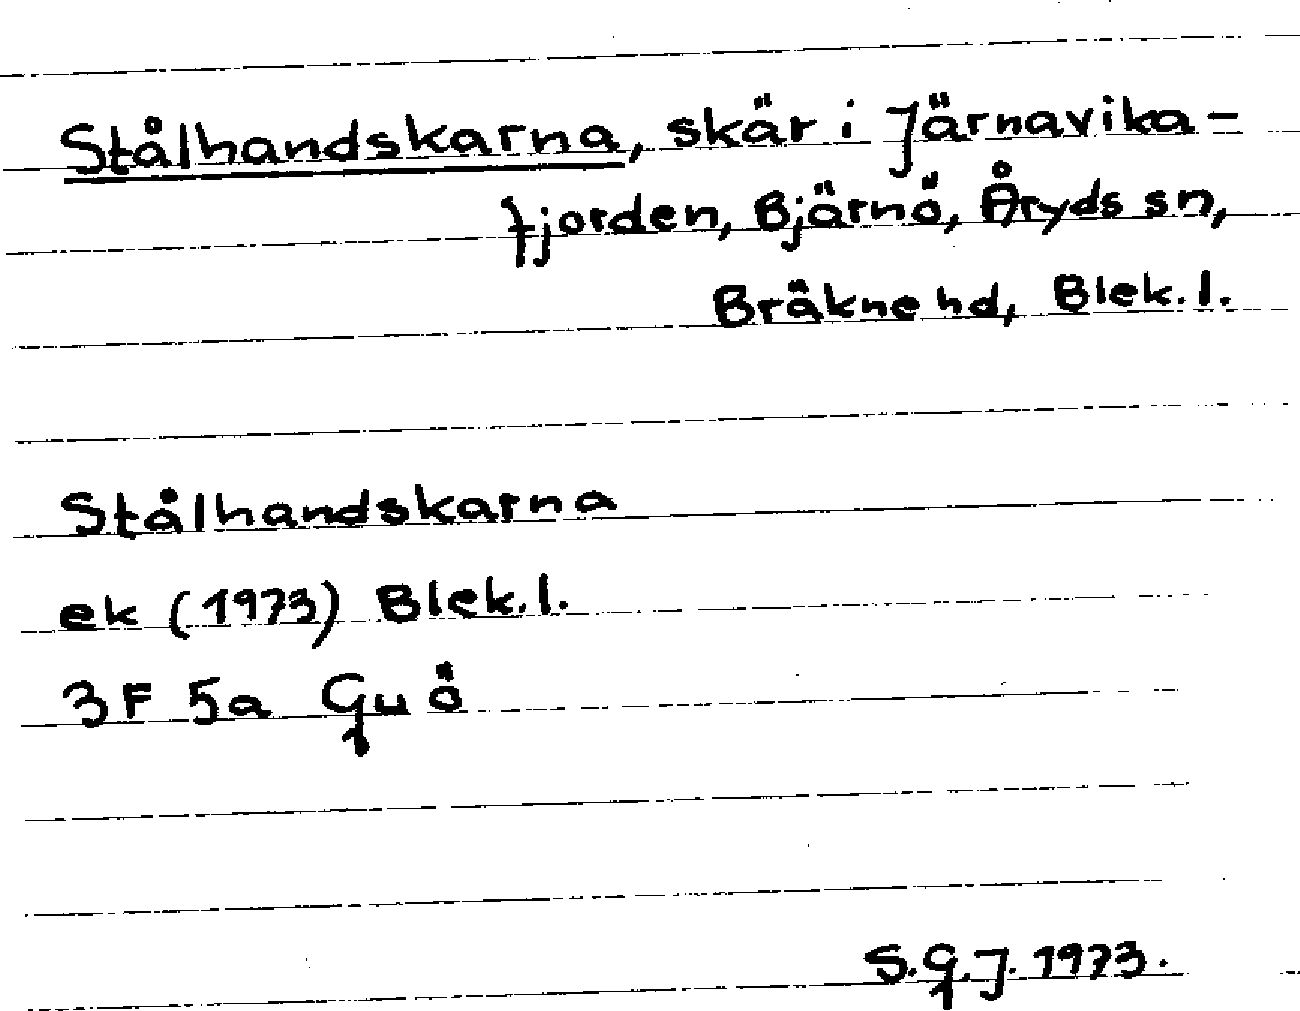 Stålhandskarna, skär i Järnavika-
fjorden, Bjärnö, Åryds sn,
Bräkne hd, Blek. l.
Stålhandskarna
ek (1973) Blek. l.
3F 5a Guö
S.G.J. 1973.